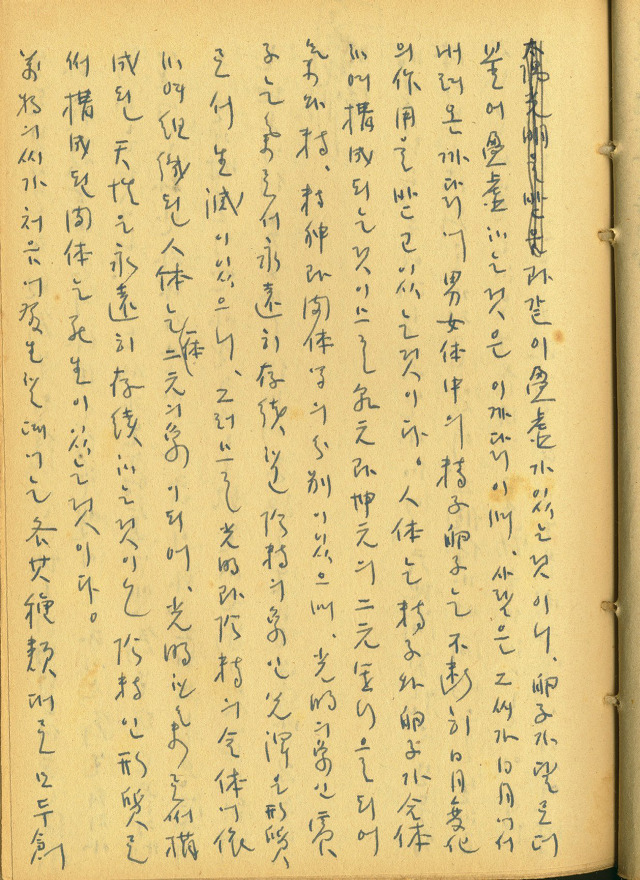 과 같이 盈虛가 있는 것이니, 卵子가 달로 더
불어 盈虛하는 것은 이 까닭이며, 사람은 그 씨가 日月에서
내려온 까닭에 男女体中의 精子 卵子는 不斷히 日月變化
의 作用을 받고 있는 것이다. 人体는 精子와 卵子가 合体
하여 構成되는 것이므로 乾元과 坤元의 二元 으로 되어
氣와 精, 精神과 肉体 의 分別이 있으며, 光明의 氣인 靈
子는 氣로서 永遠히 存續 陰精의 氣인 은 形質
로서 生滅이 있으니, 그러므로 光明과 陰精의 合体에 依
하여 組織된 人体는 一体二元의 象이 되어, 光明 氣로써 構
成된 天性은 永遠히 存續하는 것이나 陰精인 形質로
써 構成된 肉体는 死生이 있는 것이다.
萬物의 씨가 처음에 發生할 때에는 各其 種類대로 모두 創